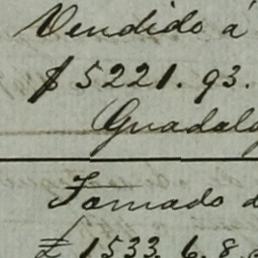 Vendido á
$ 5221.93.
Guadalo
Tomado d
£ 1533. 6. 8.